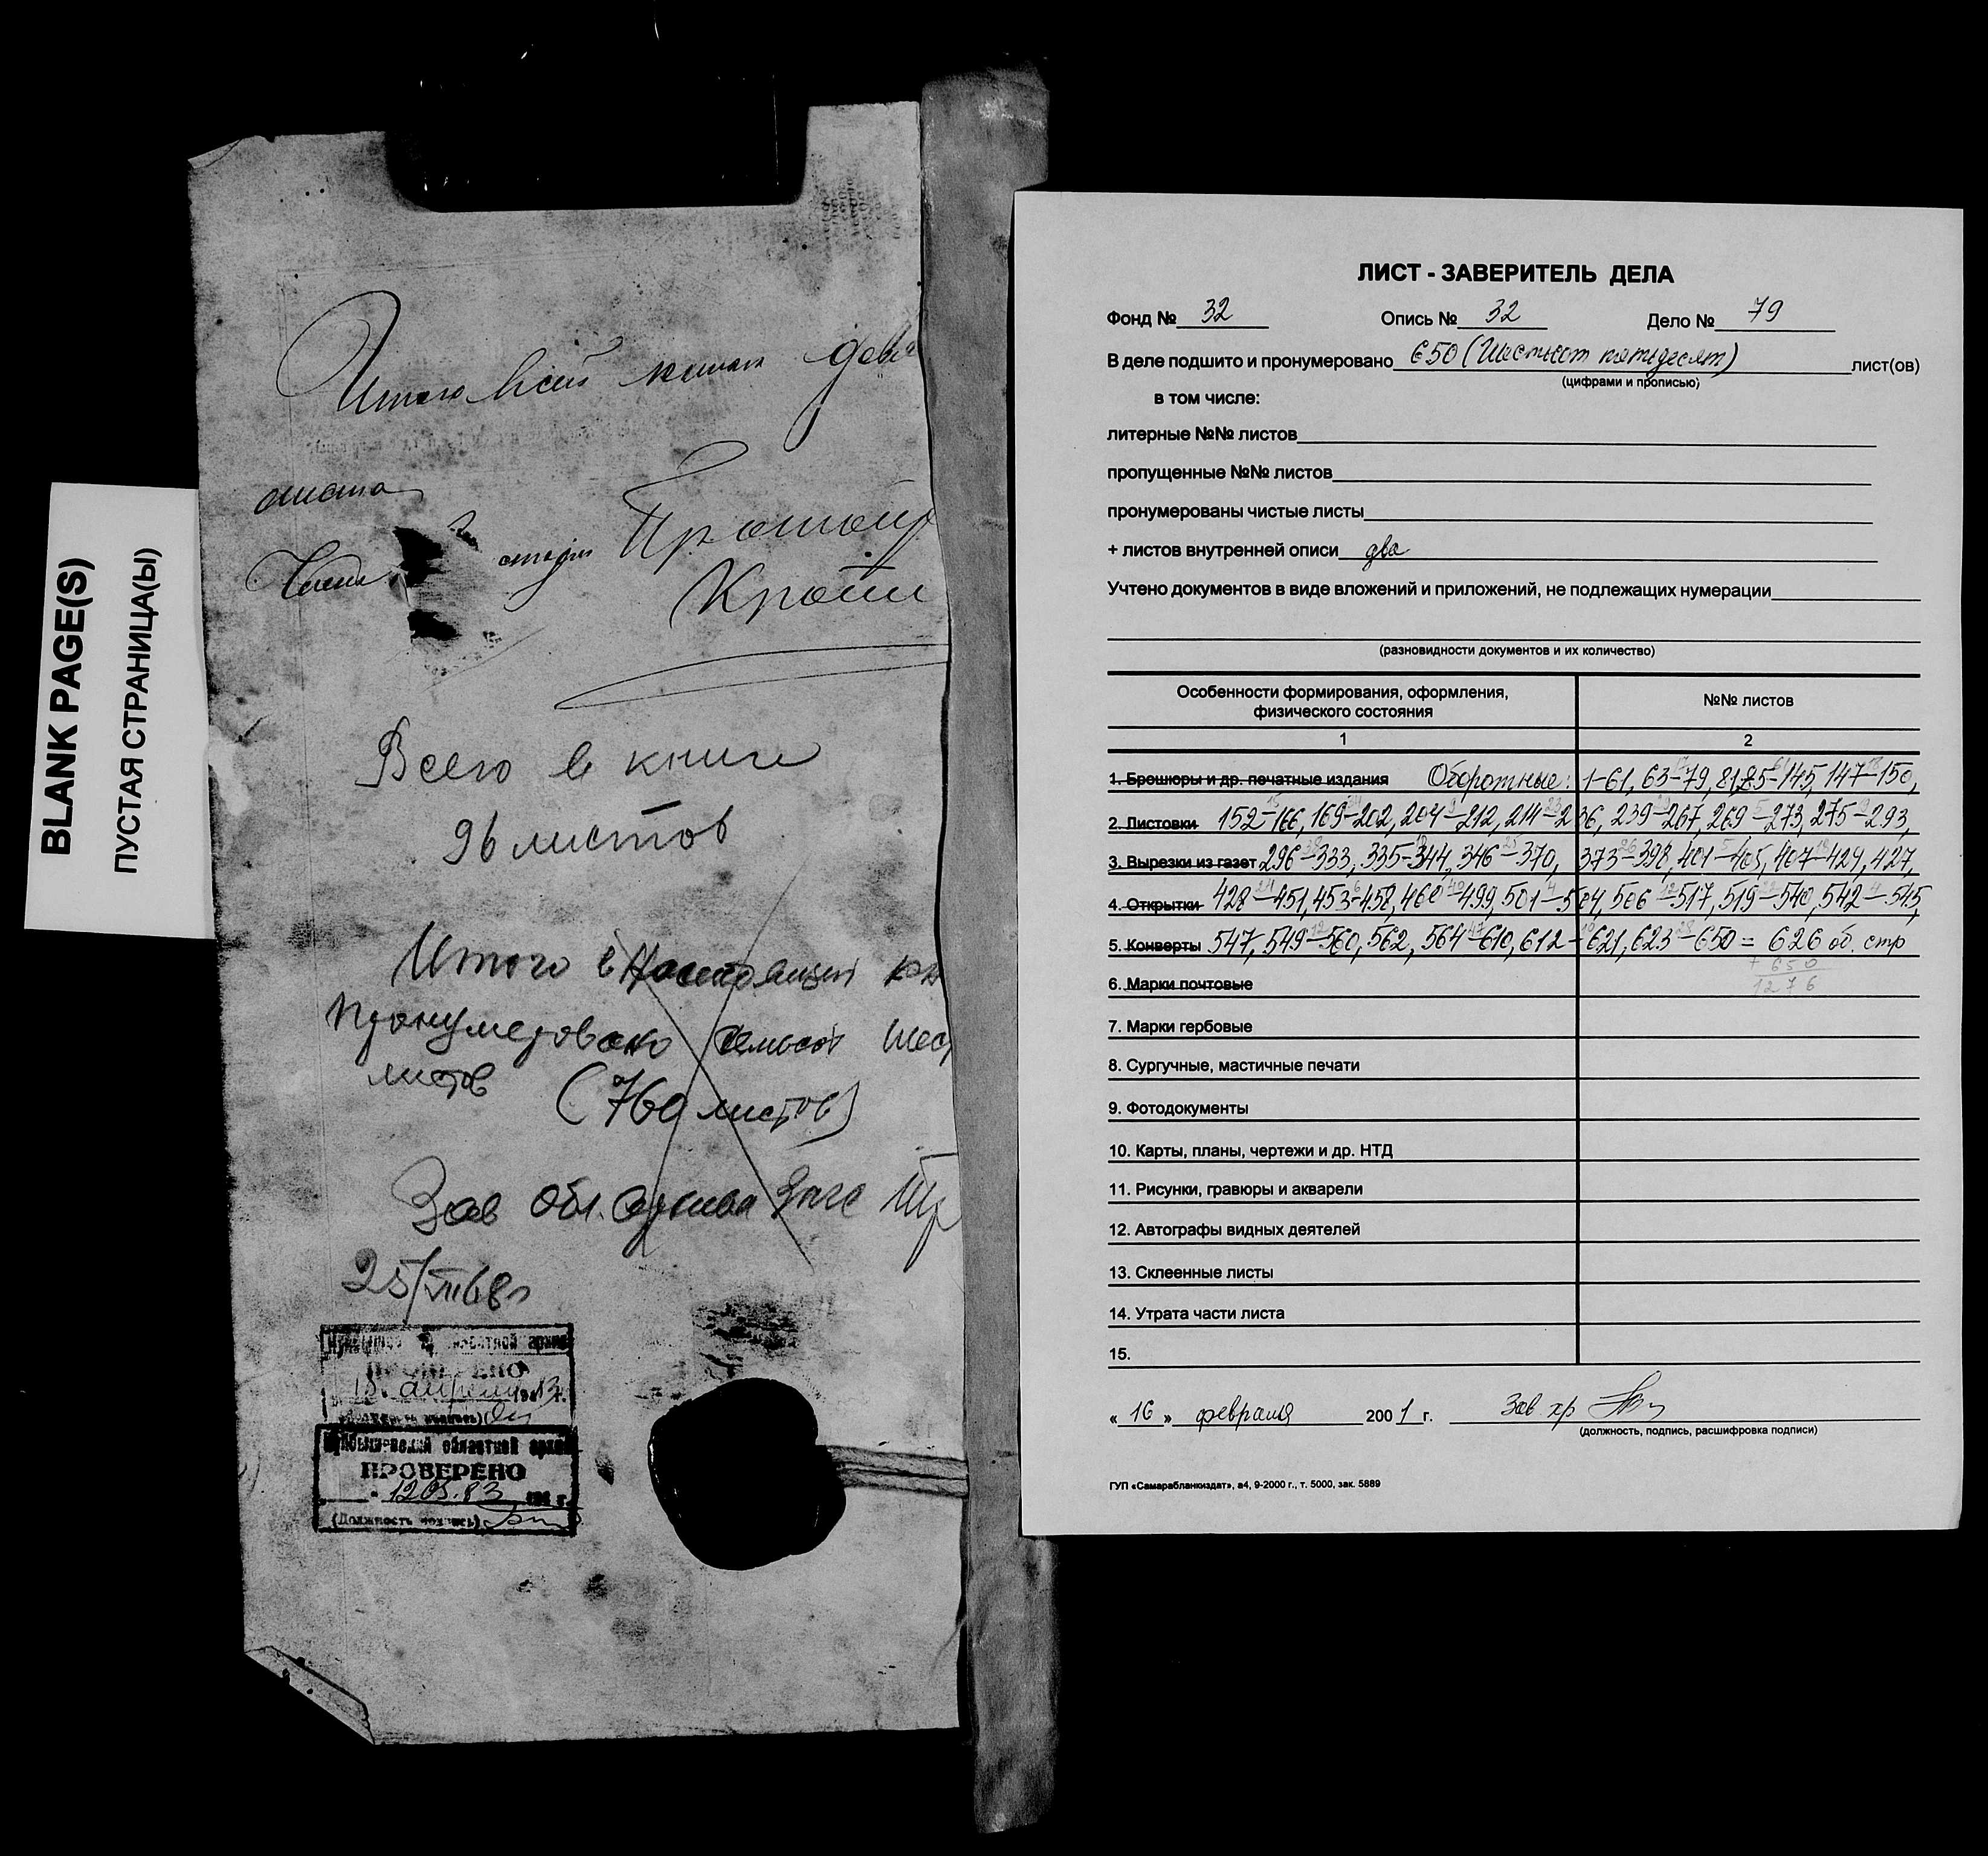 BLANK PAGE(S)
ПУСТАЯ СТРАНИЦА(Ы)
Итого
листа
Всего в книге
96 листов
Итого в настоящей кн
пронумеровано семьсот шест
листов (760 листов)
Зав обл. архива Загс
25/VII68г
областной архив
ПРОВЕРЕНО
15. апреля
областной архив
ПРОВЕРЕНО
12 05. 83
(Должность подпись)
ЛИСТ - ЗАВЕРИТЕЛЬ ДЕЛА
Фонд № 32 Опись № 32 Дело № 79
В деле подшито и пронумеровано 650 (Шестьсот пятьдесят) лист(ов)
(цифрами и прописью)
в том числе:
литерные №№ листов
пропущенные №№ листов
пронумерованы чистые листы
+ листов внутренней описи два
Учтено документов в виде вложений и приложений, не подлежащих нумерации
(разновидности документов и их количество)
Особенности формирования, оформления, физического состояния №№ листов
1 2
1. Брошюры и др. печатные издания Оборотные: 1-61, 63-79, 81, 85-145, 147-150,
2. Листовки 152-166, 169-202, 204-212, 214-236, 239-267, 269-273, 275-293,
3. Вырезки из газет 296-333, 335-344, 346-370, 373-398, 401-405, 407-429, 427,
4. Открытки 428-451, 453-458, 460-499, 501-504, 506-517, 519-540, 542-545,
5. Конверты 547, 549-560, 562, 564-610, 612-621, 623-650 = 626 об. стр
+ 650
1276
6. Марки почтовые
7. Марки гербовые
8. Сургучные, мастичные печати
9. Фотодокументы
10. Карты, планы, чертежи и др. НТД
11. Рисунки, гравюры и акварели
12. Автографы видных деятелей
13. Склеенные листы
14. Утрата части листа
15.
« 16 » февраля 2001 г. Зав. хр
(должность, подпись, расшифровка подписи)
ГУП «Самарабланкиздат», а4, 9-2000 г., т. 5000, зак. 5889